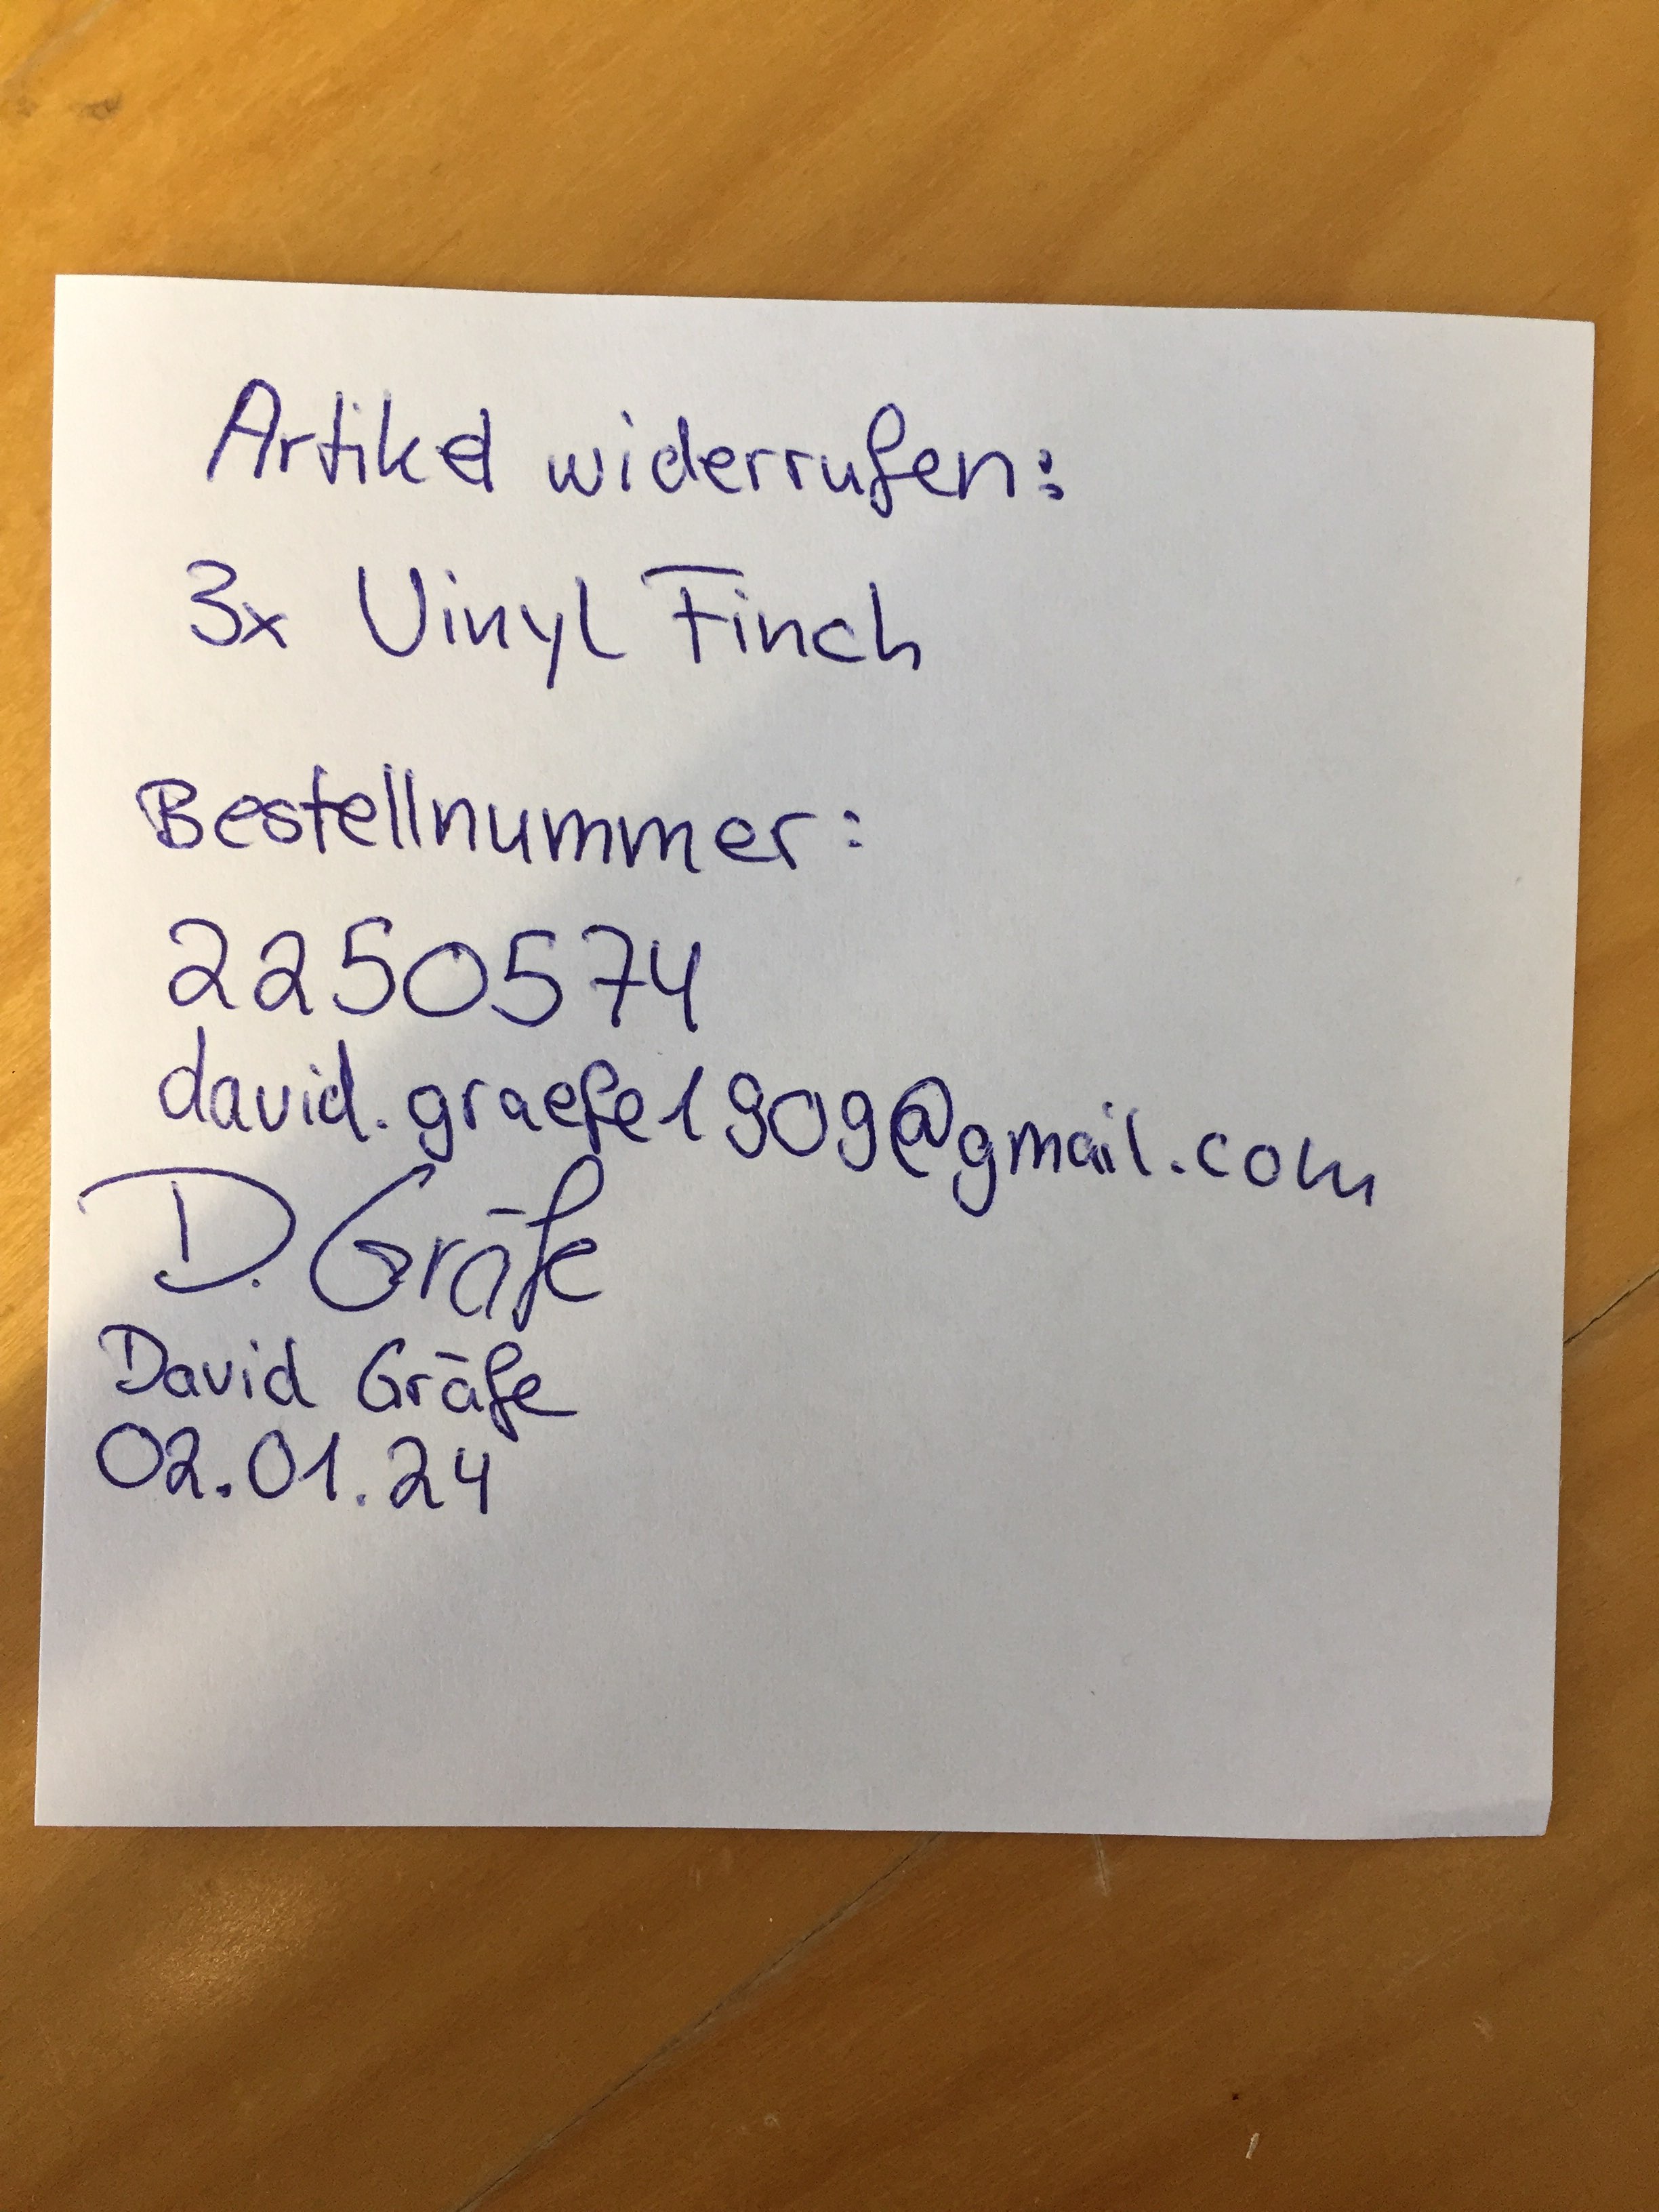 Artikel widerrufen:
3x Vinyl Finch
Bestellnummer:
2250574
david.graefe1909@gmail.com
D. Gräfe
David Gräfe
02.01.24